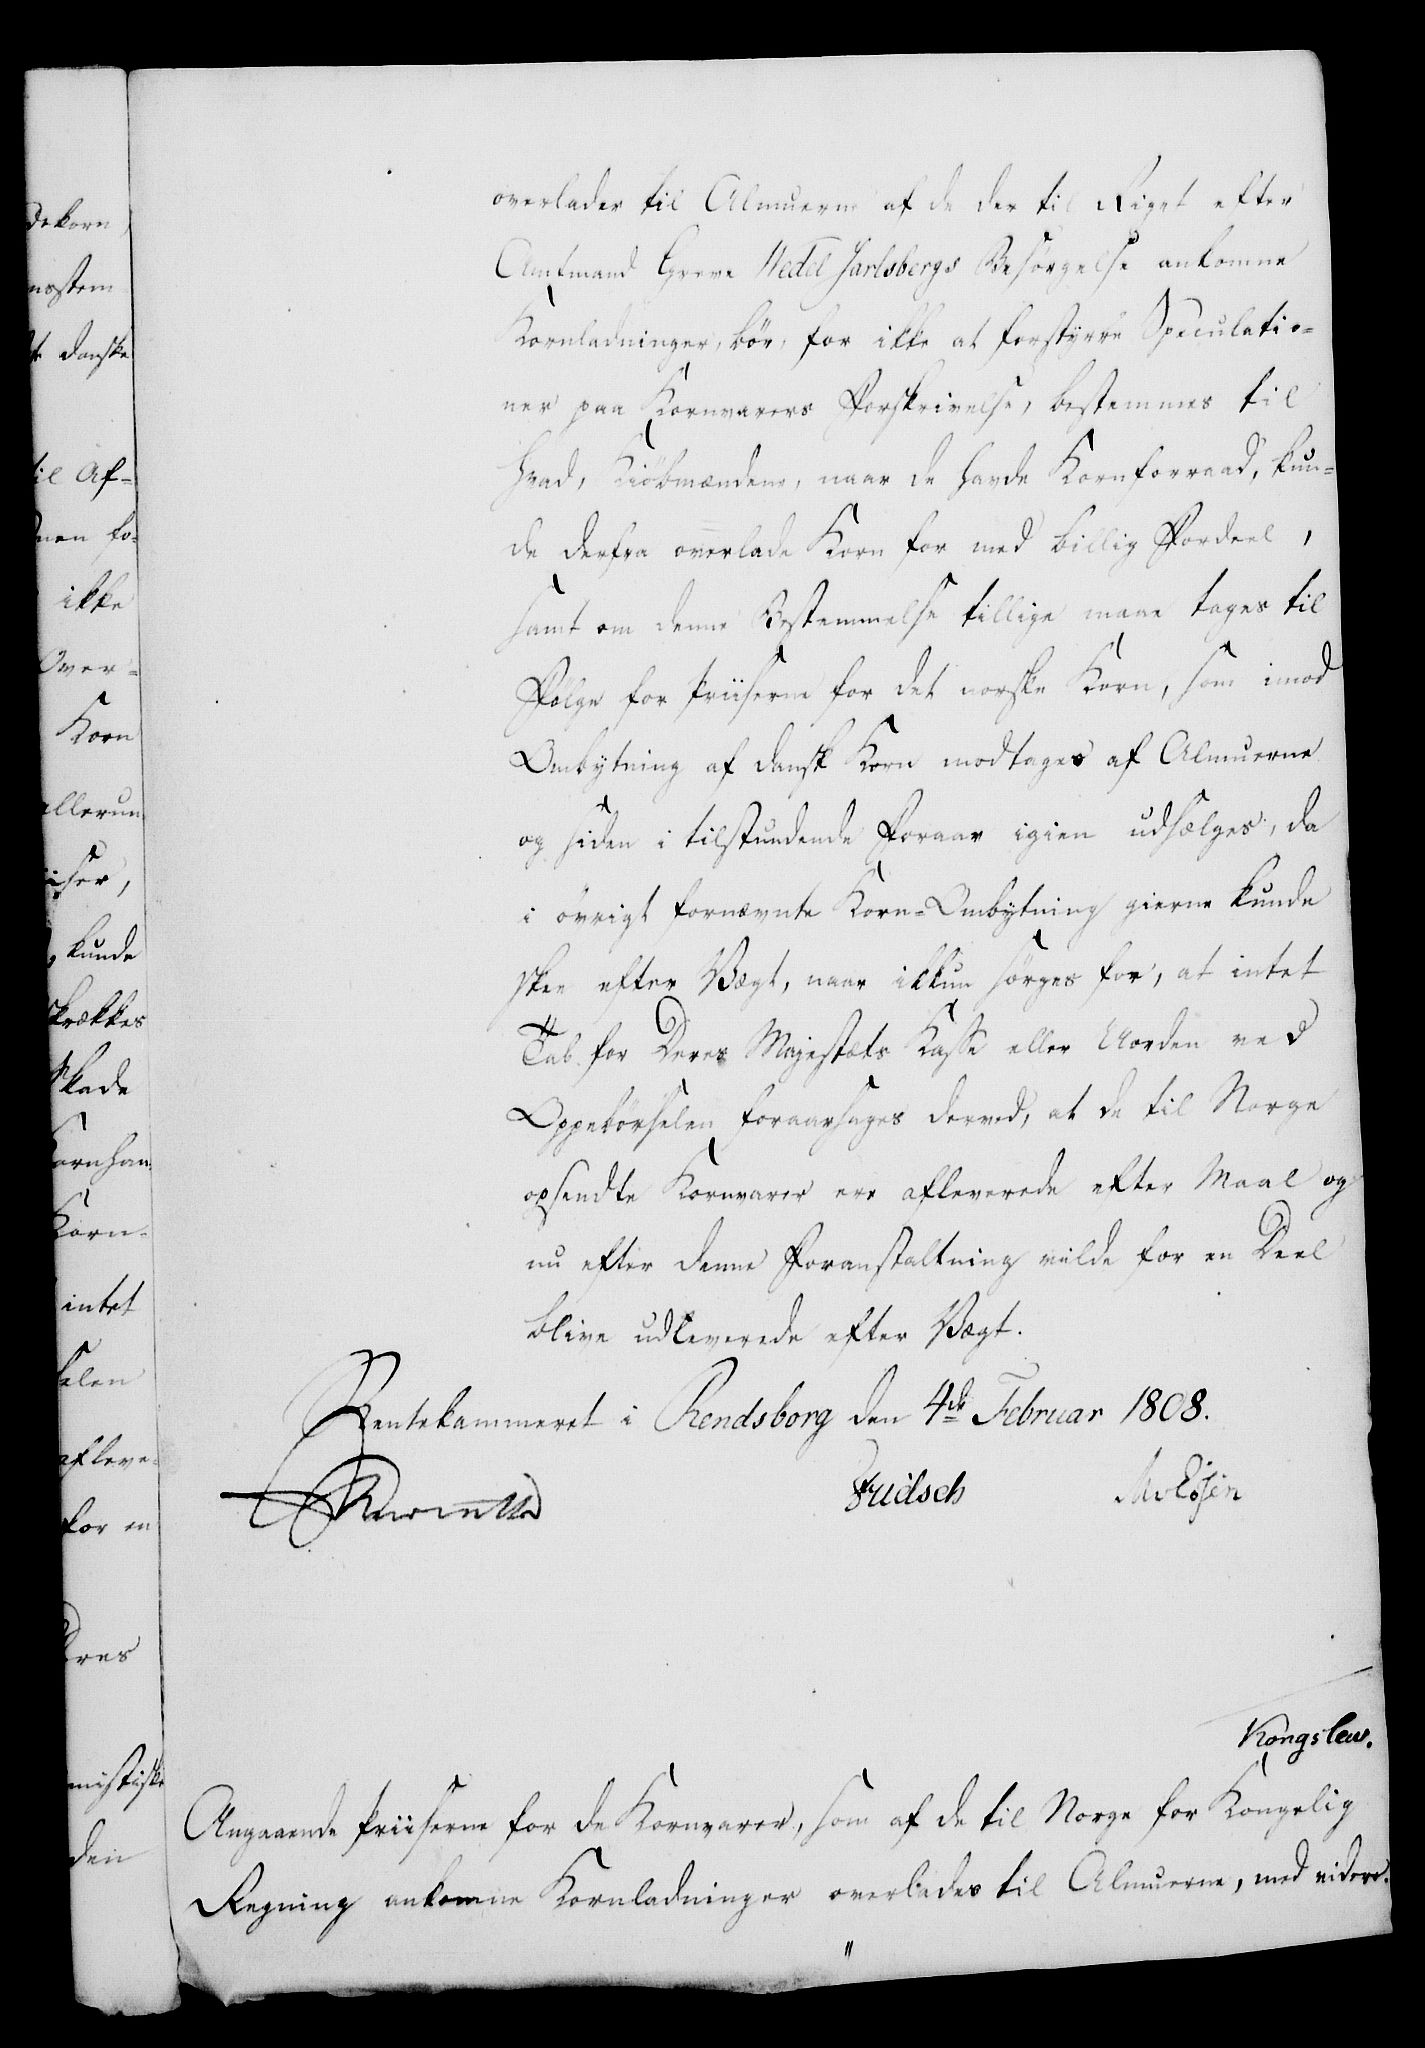 overlades til Almuerne af de der til Riget efter
Amtmand Greve Wedel Jarlsbergs Besørgelse ankomne
Kornladninger, bør, for ikke at forstyrre Speculatio-
ner paa Kornvarers Forskrivelse, bestemmes til
hvad, Kiøbmændene, naar de havde Kornforraad, kun-
de derfra overlade Korn for med billig Fordeel,
samt om denne Bestemmelse tillige maae tages til
Følge for Priiserne for det norske Korn, som imod
Ombytning af dansk Korn modtages af Almuerne
og siden i tilstundende Foraar igien udsælges, da
i øvrigt fornævnte Korn-Ombytning gierne kunde
skee efter Vægt, naar ikkun sørges for, at intet
Tab for Deres Majestæts Kasse eller Uorden ved
Oppebørselen foraarsages derved, at de til Norge
opsendte Kornvarer ere afleverede efter Maal og
nu efter denne Foranstaltning vilde for en Deel
blive udleverede efter Vægt.
Rentekammeret i Rendsborg den 4de Februar 1808.
Kongslew.
Angaaende Priiserne for de Kornvarer, som af de til Norge for Kongelig
Regning ankomne Kornladninger overlades til Almuerne, med videre.
dekorn,
nsstem
danske
til Af-
nen fo-
ikke
Over-
Korn
allerun
iser,
kunde
skrækkes
Skade
Kornhan
Korn-
intet
selen
afleve-
for en
eres
mistiske
den